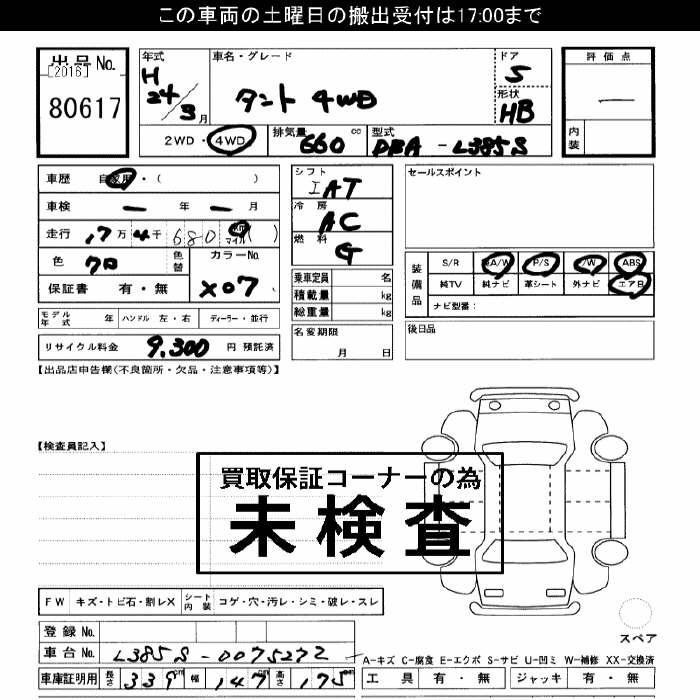 この車両の土曜日の搬出受付は17:00まで
出品No. [2016]
80617
年式 H 24/3月
車名・グレード
タント 4WD
ドア 5
形状 HB
評価点
—
内装
2WD・4WD
排気量 660 cc
型式 DBA - L385S
車歴 自家用・( )
車検 — 年 — 月
走行 17万4千680 マイル ( )
色 クロ
色替
カラーNo. X07
保証書 有・無
シフト IAT
冷房 AC
燃料 G
乗車定員 名
積載量 kg
総重量 kg
セールスポイント
装備品
S/R A/W P/S P/W ABS
純TV 純ナビ 革シート 外ナビ エアB
ナビ型番:
モデル年式 年 ハンドル 左・右 ディーラー・並行
名変期限 月 日
後日品
リサイクル料金 9,300 円 預託済
【出品店申告欄(不良箇所・欠品・注意事項等)】
【検査員記入】
買取保証コーナーの為
未検査
FW キズ・トビ石・割レX
シート内装 コゲ・穴・汚レ・シミ・破レ・スレ
スペア
登録No.
車台No. L385S-0075272
A-キズ C-腐食 E-エクボ S-サビ U-凹ミ W-補修 XX-交換済
車庫証明用 長さ 339cm 幅 147cm 高さ 175cm
工具 有・無 ジャッキ 有・無